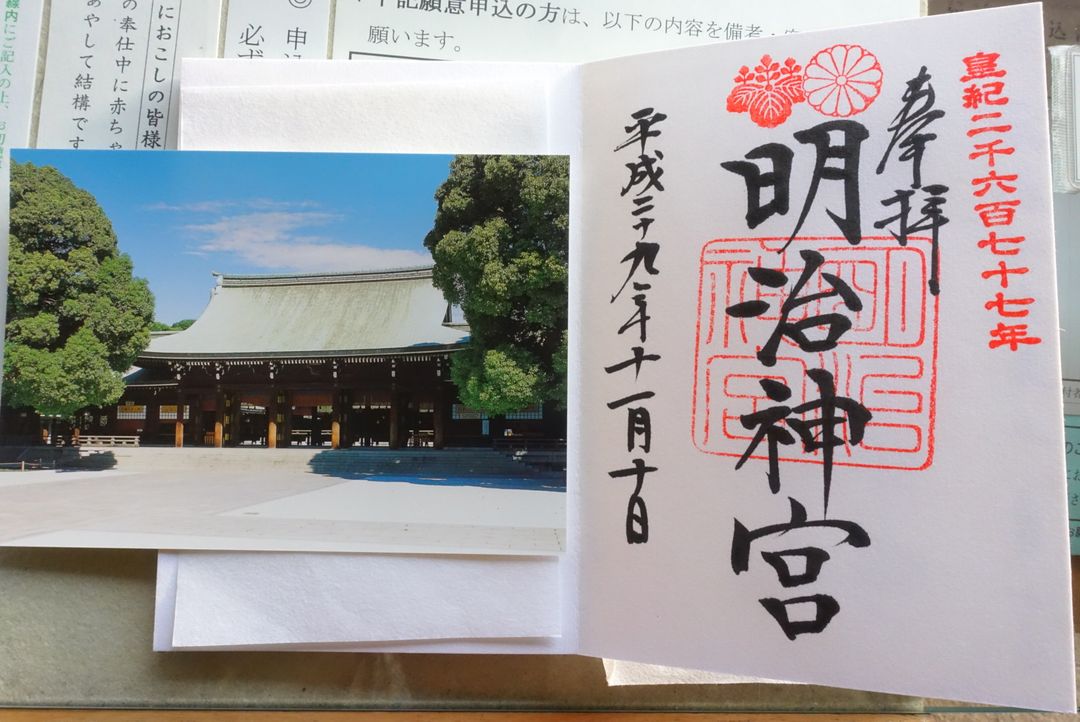 皇紀二千六百七十七年
奉拝
明治神宮
平成二十九年十一月十日
下記願意申込の方は、以下の内容を備考
願います。
◎申込
必ず
におこしの皆様
の奉仕中に赤ちゃ
あやして結構です
線内にご記入の上、